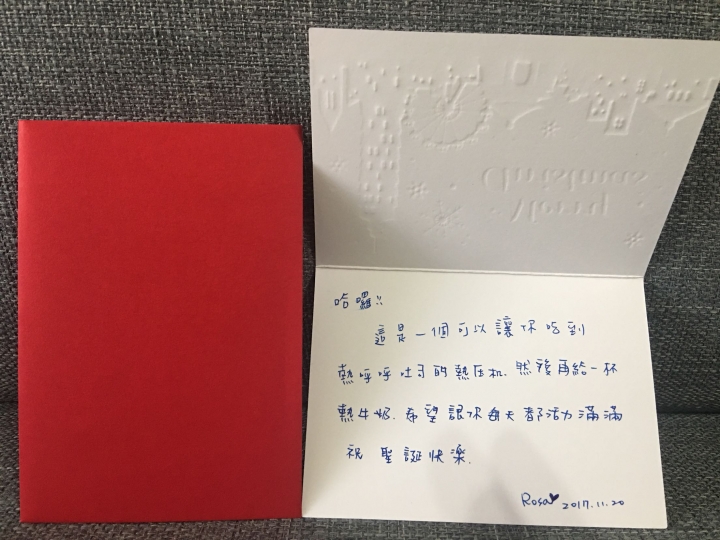 Merry
Christmas
哈囉!!
這是一個可以讓你吃到
熱呼呼吐司的熱压机.然後再給一杯
熱牛奶.希望讓你每天都活力滿滿
祝聖誕快樂.
Rosa♥ 2017.11.20